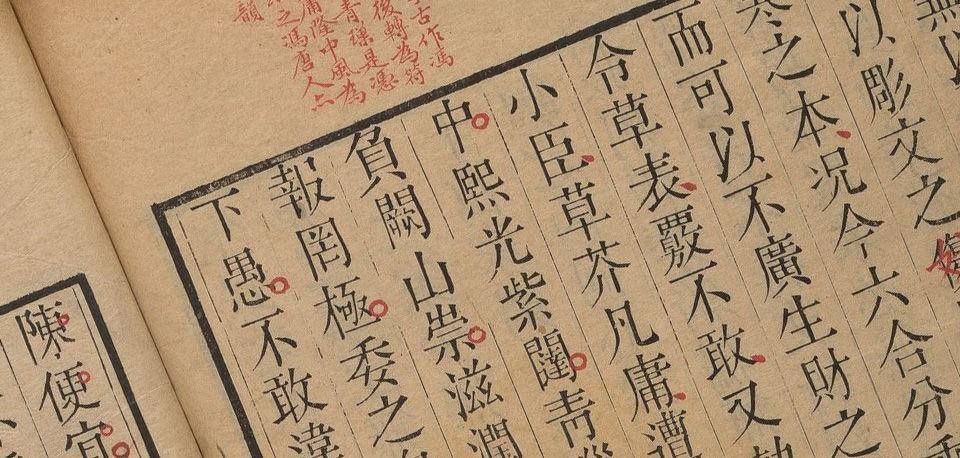 無以
以彫文之
寒之本况今六合分
而可以不廣生財之
令草表覈不敢又
小臣草芥凡庸遭
中熙光紫闥青
負闕山崇滋潤
報罔極委之
下愚不敢違
古作馮
後轉為符
青璪是憑
隆中風為
之馮唐人
韻
陳便宜